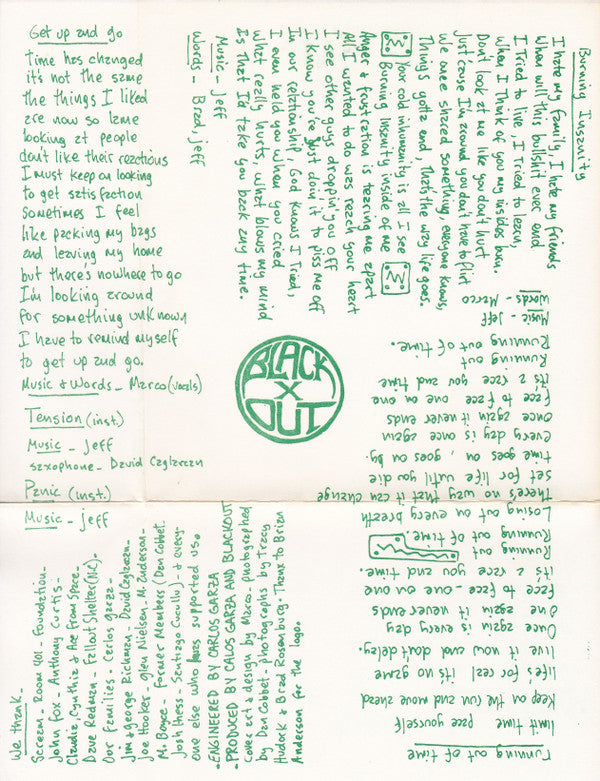 Get up and go
time has changed
it's not the same
the things I liked
are now so lame
looking at people
don't like their reactions
I must keep on looking
to get satisfaction
sometimes I feel
like packing my bags
and leaving my home
but there's nowhere to go
I'm looking around
for something unknown
I have to remind myself
to get up and go.
Music & Words - Marco (vocals)
Tension (inst.)
Music - Jeff
saxophone - David Caglarcan
Panic (inst.)
Music - Jeff
Burning Insanity
I hate my family, I hate my friends
When will this bullshit ever end
I Tried to live, I Tried to learn,
When I Think of you my insides burn.
Don't look at me like you don't hurt
Just 'cause I'm around you don't have to flirt
We once shared something, everyone knows,
Things gotta end, That's the way life goes.
Your cold inhumanity is all I see
Burning Insanity inside of me
Anger & frustration is tearing me apart
All I wanted to do was reach your heart
I see other guys droppin' you off
I know you're just doin' it to piss me off
In our relationship, God knows I Tried,
I even held you when you cried
What really hurts, what blows my mind
Is that I'd take you back any time.
Music - Jeff
Words - Brad, Jeff
BLACK
X
OUT
running out of time
limit time pace yourself
Keep on the run and move ahead
life's for real it's no game
live it now and don't delay.
Once again is every day
One again it never ends
face to face - one on one
it's a race you and time.
Running out
Running out of time.
Losing out on every breath
There's no way that it can change
set for life until you die
time goes on, goes on by.
every day is once again
once again it never ends
face to face one on one
it's a race you and time
Running out
Running out of time.
Music - Jeff
Words - Marco
We thank -
Scream - Room 401 - Foundation -
John Fox - Anthony Curtis -
Claudia, Cynthia & Ace From Space -
Dave Redman - Fallout Shelter (N.C.) -
Our Families - Carlos Garza -
Jim & George Richman - David Caglarcan -
Joe Hooker - Glen Nielsen - M. Enderson -
M. Boyce - Former Members (Dan Gobbet -
Josh Hress - Santiago Cucullu) - & every-
one else who supported us.
• ENGINEERED BY CARLOS GARZA
• PRODUCED BY CALOS GARZA AND BLACKOUT
cover art & design by Marco - photographed
by Dan Gobbet - photographs by Tracy
Hudock & Brad Rosenburg. Thanx to Brian
Anderson for the logo.